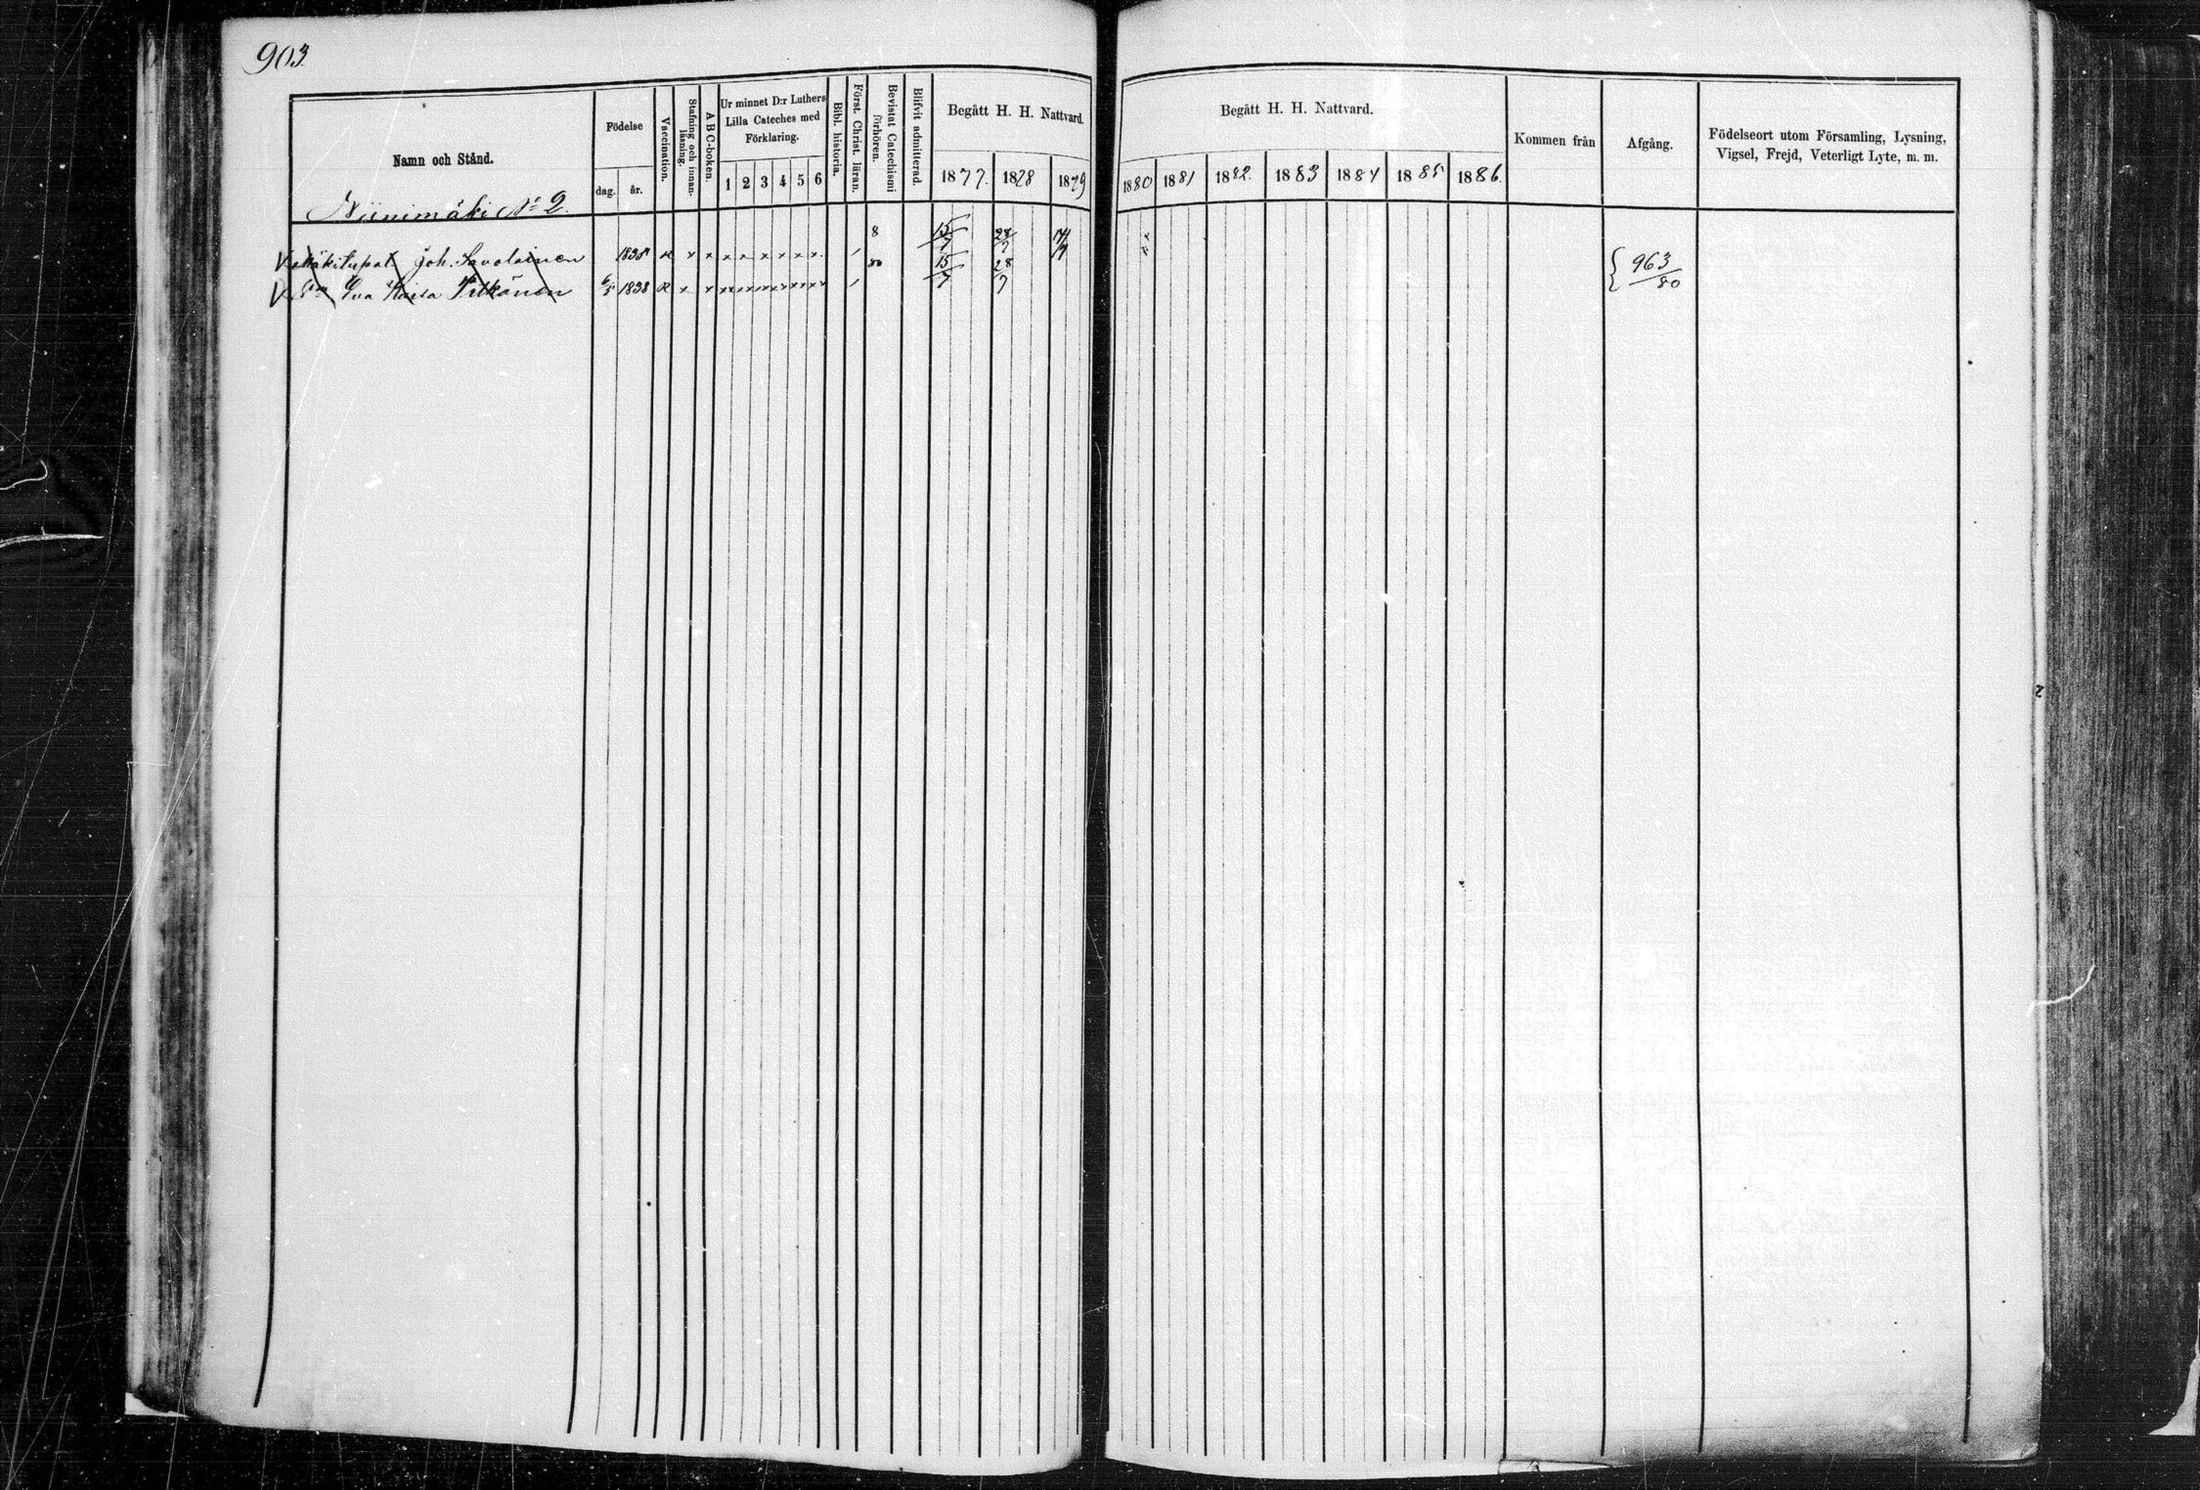 903.
Namn och Stånd.
Födelse
dag.
år.
Vaccination.
Stafning och innanläsning.
A B C-boken.
Ur minnet D:r Luthers
Lilla Cateches med
Förklaring.
1 2 3 4 5 6
Bibl. historia.
Först. Christ. läran.
Bevistat Catechismi
förhören.
Blifvit admitterad.
Begått H. H. Nattvard.
1877. 1878 1879
Begått H. H. Nattvard.
1880 1881 1882. 1883 1884 1885 1886.
Kommen från
Afgång.
Födelseort utom Församling, Lysning,
Vigsel, Frejd, Veterligt Lyte, m. m.
Niinimäki No 2.
Joh. Savolainen 1838 x x x x x x x x 15/7 28/7
Eva Kaisa Pitkänen 1838 x x x x x x x x 15/7 28/7
963/80